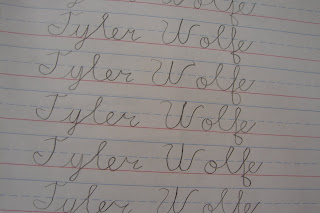 Tyler Wolfe
Tyler Wolfe
Tyler Wolfe
Tyler Wolfe
Tyler Wolfe